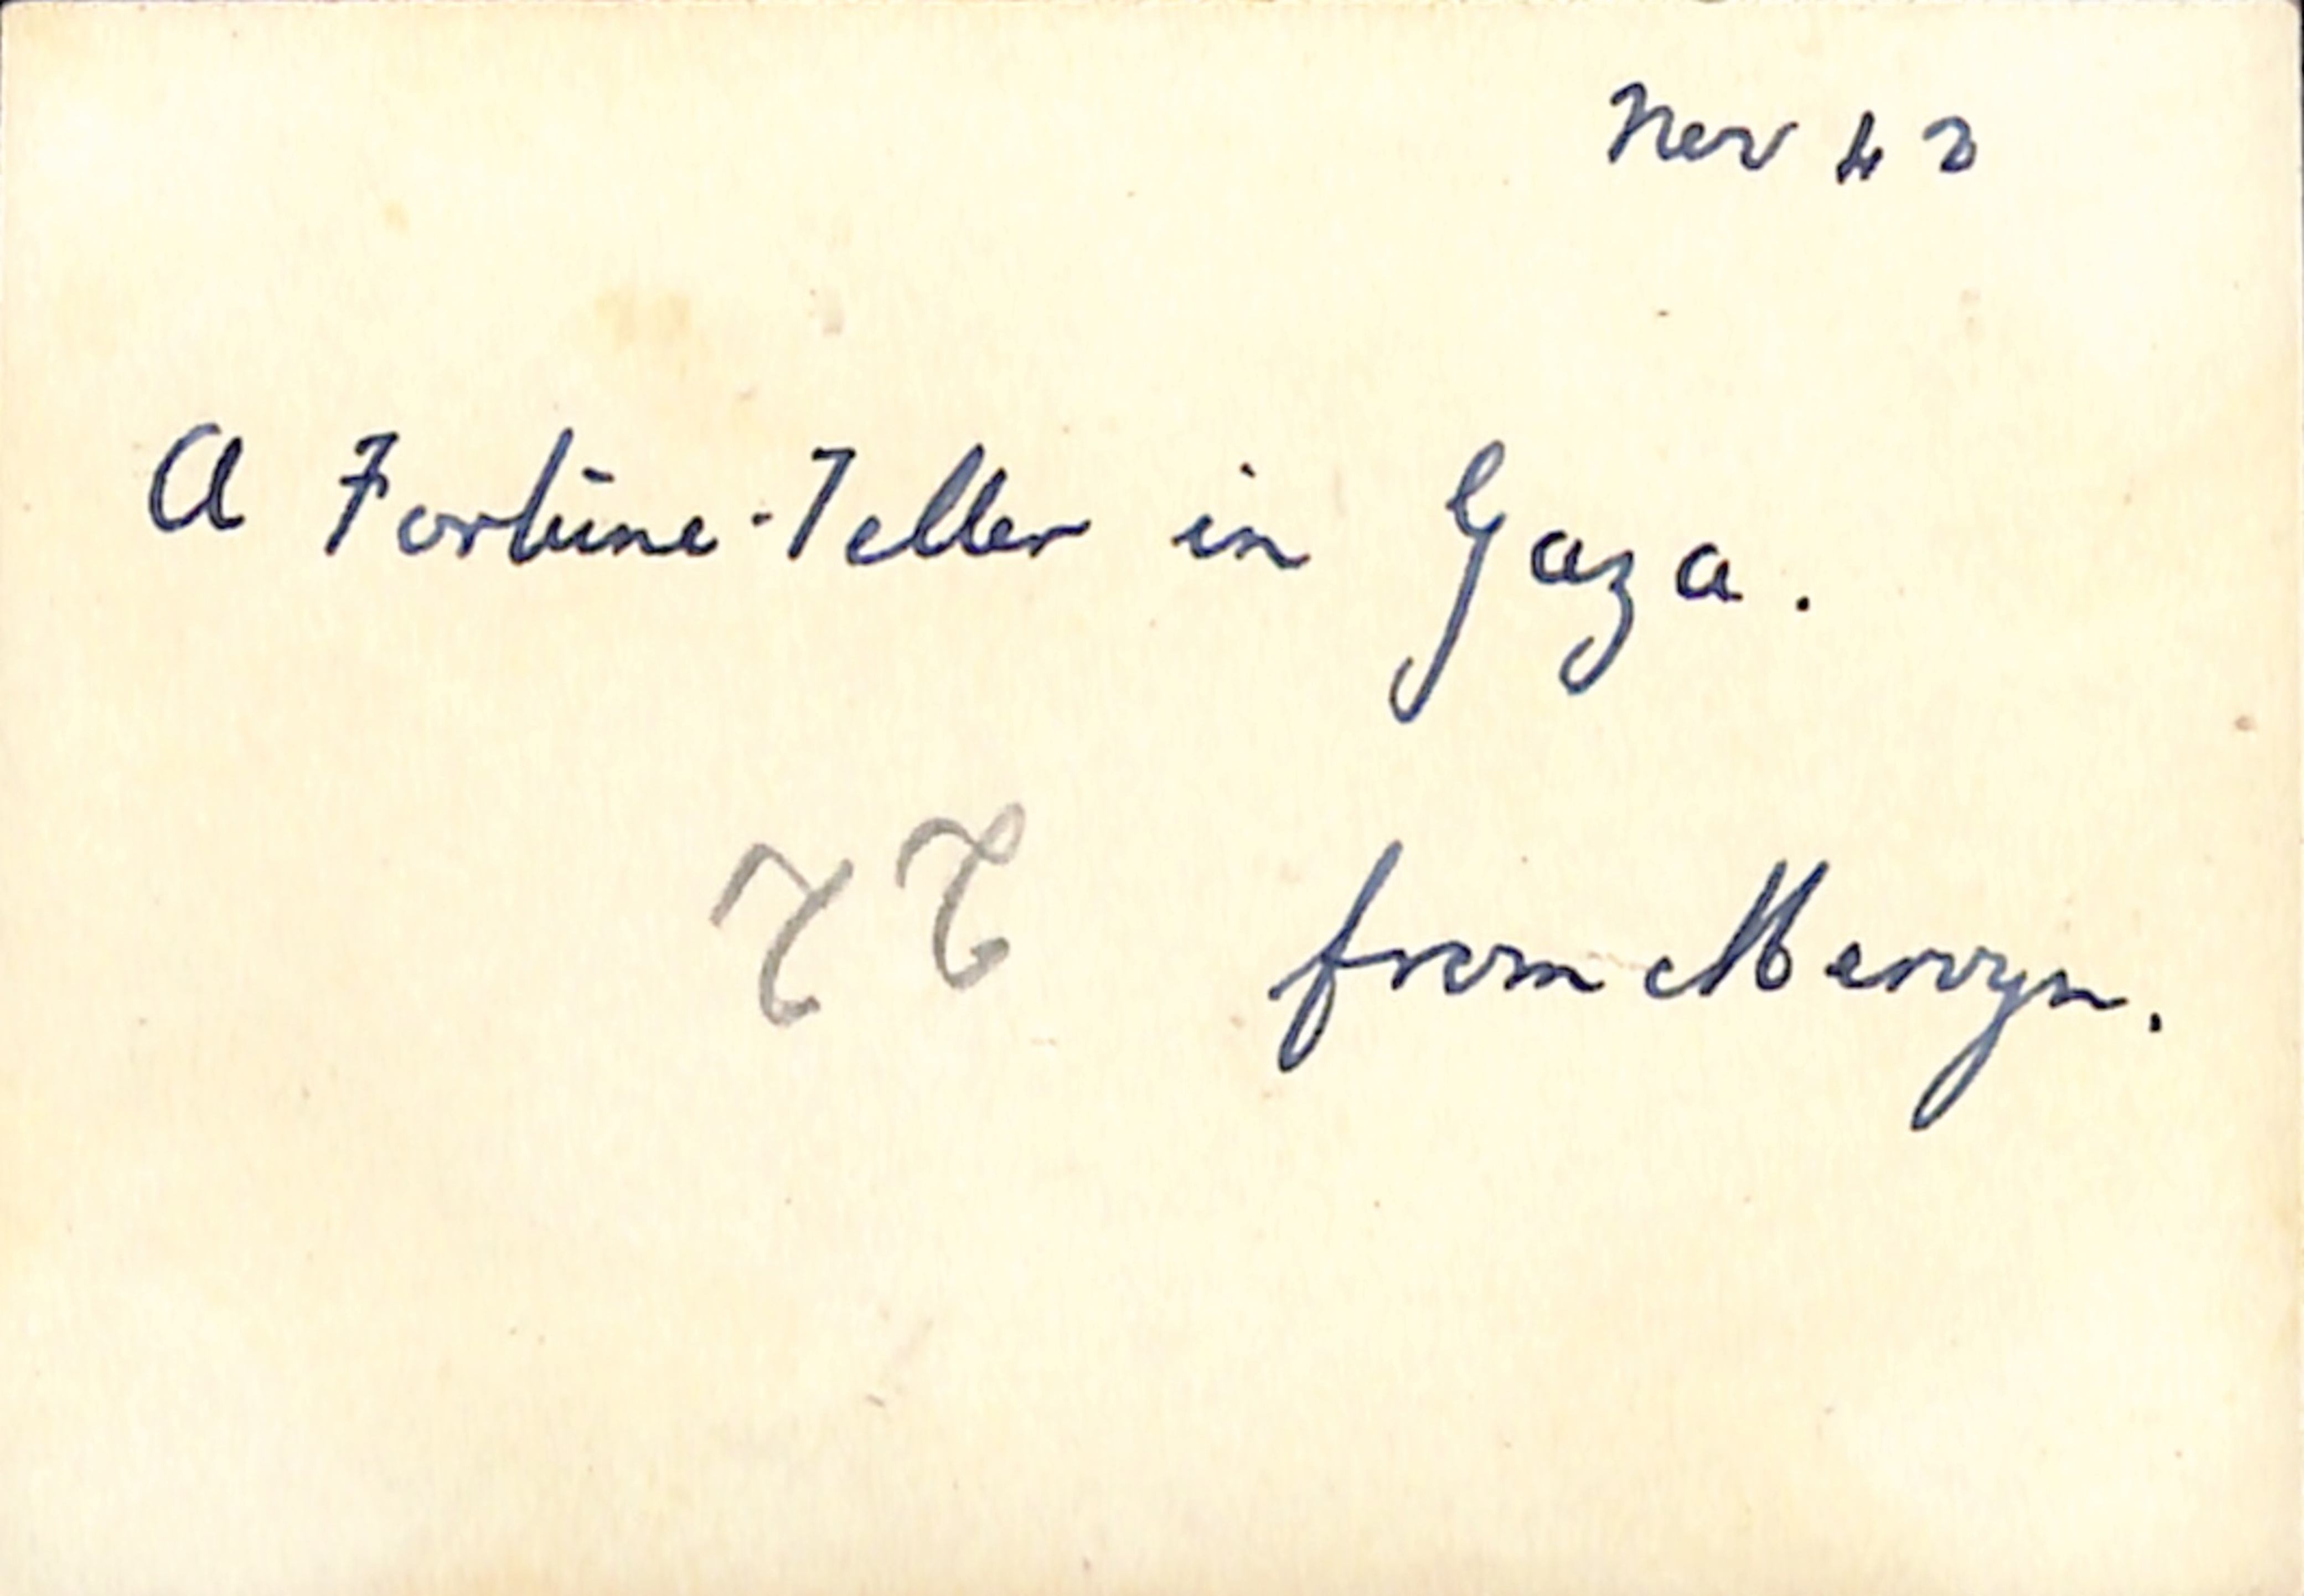 Nov 42
A Fortune-Teller in Gaza.
from Mervyn.